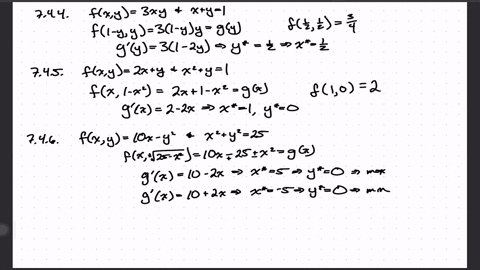 7.4.4. f(x,y)=3xy & x+y=1
f(1-y,y)=3(1-y)y=g(y) f(½,½)=3/4
g'(y)=3(1-2y)⇒y*=½⇒x*=½
7.4.5. f(x,y)=2x+y & x²+y=1
f(x,1-x²)= 2x+1-x²=g(x) f(1,0)=2
g'(x)=2-2x⇒x*=1, y*=0
7.4.6. f(x,y)=10x-y² & x²+y²=25
f(x,√25-x²)=10x∓25±x²=g(x)
g'(x)=10-2x⇒x*=5⇒y*=0⇒max
g'(x)=10+2x⇒x*=-5⇒y*=0⇒min